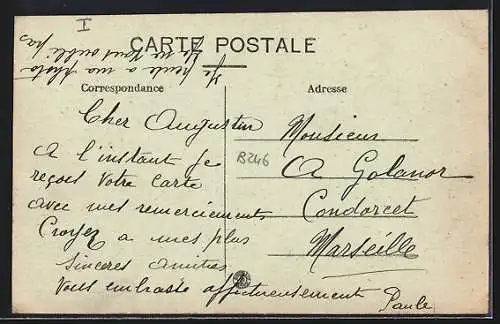 I
CARTE POSTALE
Je pense a ma photo
Je ne vous oubli
pas
Correspondance
Adresse
Cher Augustin
A l'instant je
reçois votre carte
avec mes remerciements
Croyez a mes plus
sinceres amities
Vous embrasse affectueusement
Paule
B246
Monsieur
A Golanor
Condorcet
Marseille